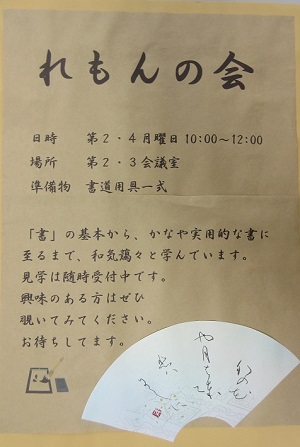 れもんの会
日時 第２・４月曜日 10:00～12:00
場所 第２・３会議室
準備物 書道用具一式
「書」の基本から、かなや実用的な書に
至るまで、和気藹々と学んでいます。
見学は随時受付中です。
興味のある方はぜひ
覗いてみてください。
お待ちしてます。